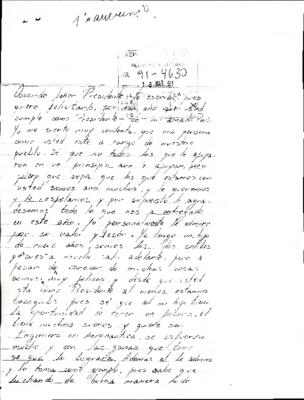 91-4630
Querido Señor Presidente le escribo pues
quiero felicitarlo, por un año que usted
cumple como Presidente de mi
Yo me siento muy contenta, que una persona
como usted esté a cargo de nuestro
pueblo. Sé que no todos los que le apoya
ron en un principio aún le apoyan, pero
quiero que sepa que los que estamos con
usted somos aún muchos, y le queremos
y le respetamos, y por supuesto le agra
decemos todo lo que nos a entregado
en este año. Yo personalmente le admiro
por su valor y Yo tengo un hijo
de nueve años, somos los dos solitos
y cuesta mucho salir adelante, pero a
pesar de carecer de muchas cosas
somos muy felices y desde que usted
está como Presidente al menos estamos
tranquilos pues sé que así mi hijo tiene
la oportunidad de tener un futuro, el
tiene muchos sueños y quiere ser
Ingeniero en Aeronautica, se esfuerza
mucho y con las ganas que tiene
se que lo logrará. Además él le admira
y lo toma como ejemplo, pues sabe que
luchando de buena manera todo